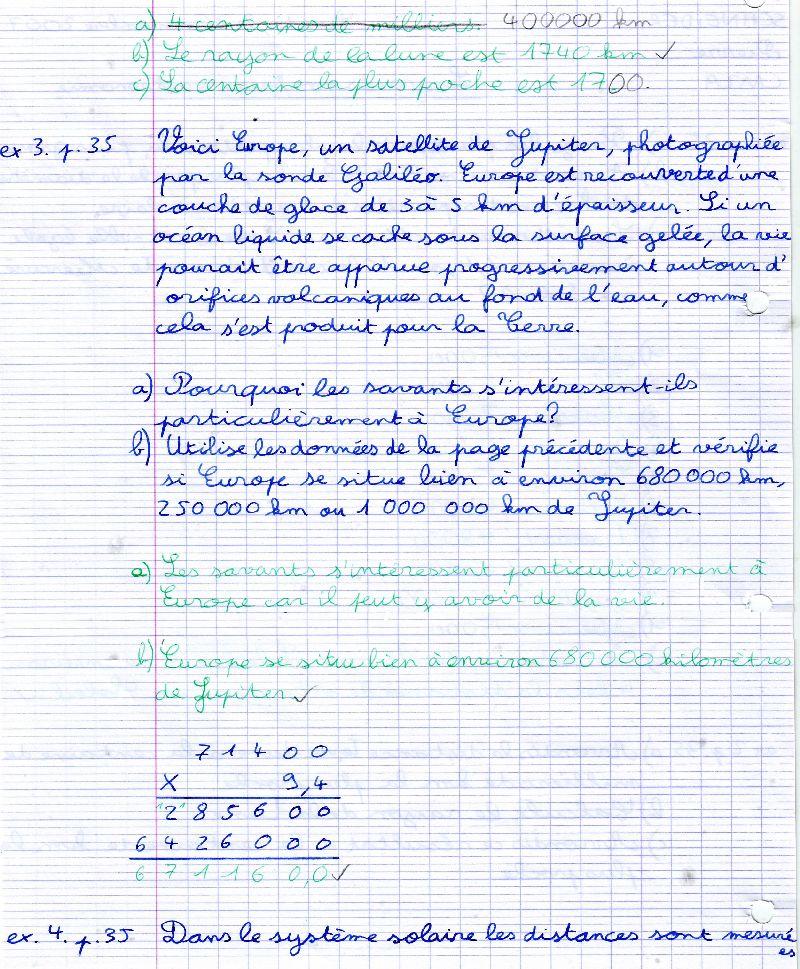 a) 4 centaines de milliers. 400000 km
b) Le rayon de la lune est 1740 km ✓
c) La centaine la plus proche est 1700.
ex 3. p. 35 Voici Europe, un satellite de Jupiter, photographiée
par la sonde Galiléo. Europe est recouverte d'une
couche de glace de 3 à 5 km d'épaisseur. Si un
océan liquide se cache sous la surface gelée, la vie
pourait être apparue progressivement autour d'
orifices volcaniques au fond de l'eau, comme
cela s'est produit pour la Terre.
a) Pourquoi les savants s'intéressent-ils
particulièrement à Europe?
b) Utilise les données de la page précédente et vérifie
si Europe se situe bien à environ 680 000 km,
250 000 km ou 1 000 000 km de Jupiter.
a) Les savants s'intéressent particulièrement à
Europe car il peut y avoir de la vie.
b) Europe se situe bien à environ 680 000 kilomètres
de Jupiter ✓
7 1 4 0 0
X 9,4
2 8 5 6 0 0
6 4 2 6 0 0 0
6 7 1 1 6 0,0 ✓
ex. 4. p. 35 Dans le système solaire les distances sont mesuré
es